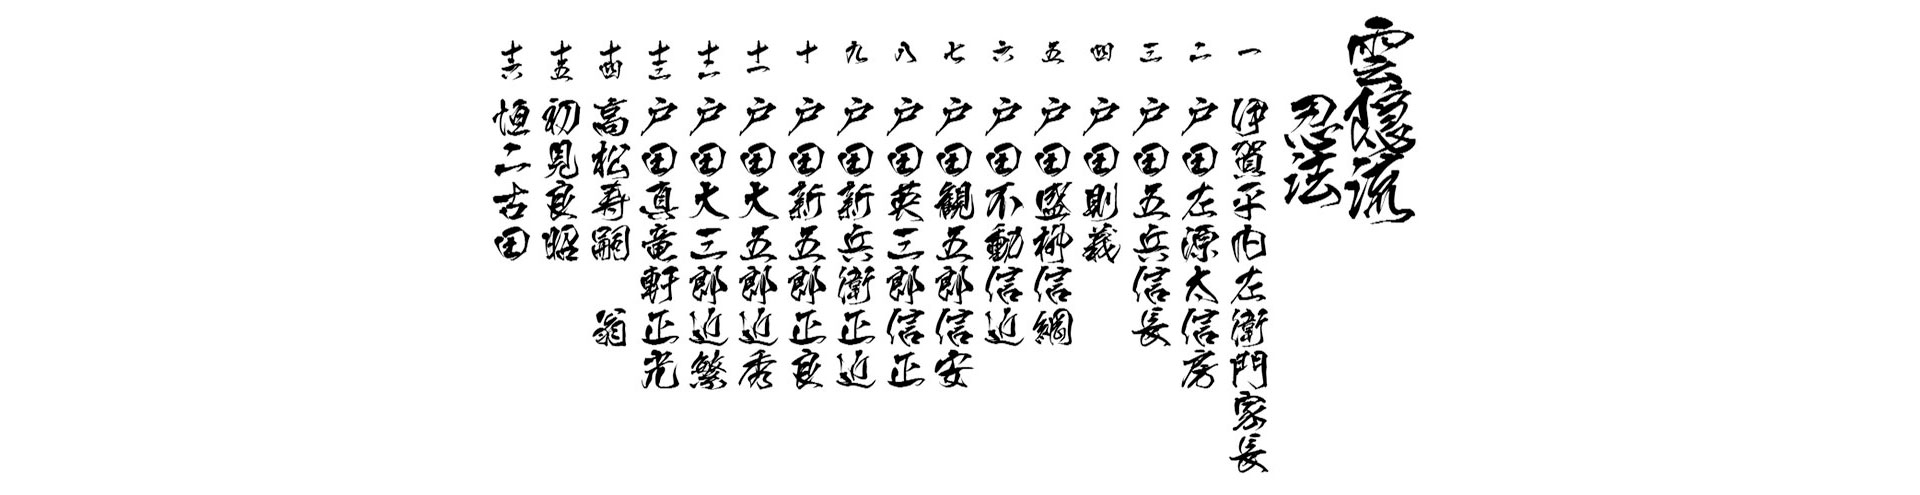 雲隠流
忍法
一 伊賀平内左衛門家長
二 戸田左源太信房
三 戸田五兵信長
四 戸田則義
五 戸田盛柳信綱
六 戸田不動信近
七 戸田観五郎信安
八 戸田英三郎信正
九 戸田新兵衛正近
十 戸田新五郎正良
十一 戸田大五郎近秀
十二 戸田大三郎近繁
十三 戸田真竜軒正光
十四 高松寿嗣 翁
十五 初見良昭
十六 恒二古田